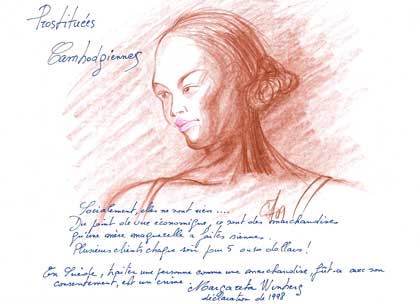 Prostituées
Cambodgiennes
Socialement, elles ne sont rien ....
Du point de vue économique, ce sont des marchandises
qu'une mère maquerelle a faites siennes.
Plusieurs clients chaque soir pour 5 ou 10 dollars !
En Suède, traiter une personne comme une marchandise, fût-ce avec son
consentement, est un crime
Margareta Winberg
déclaration de 1998